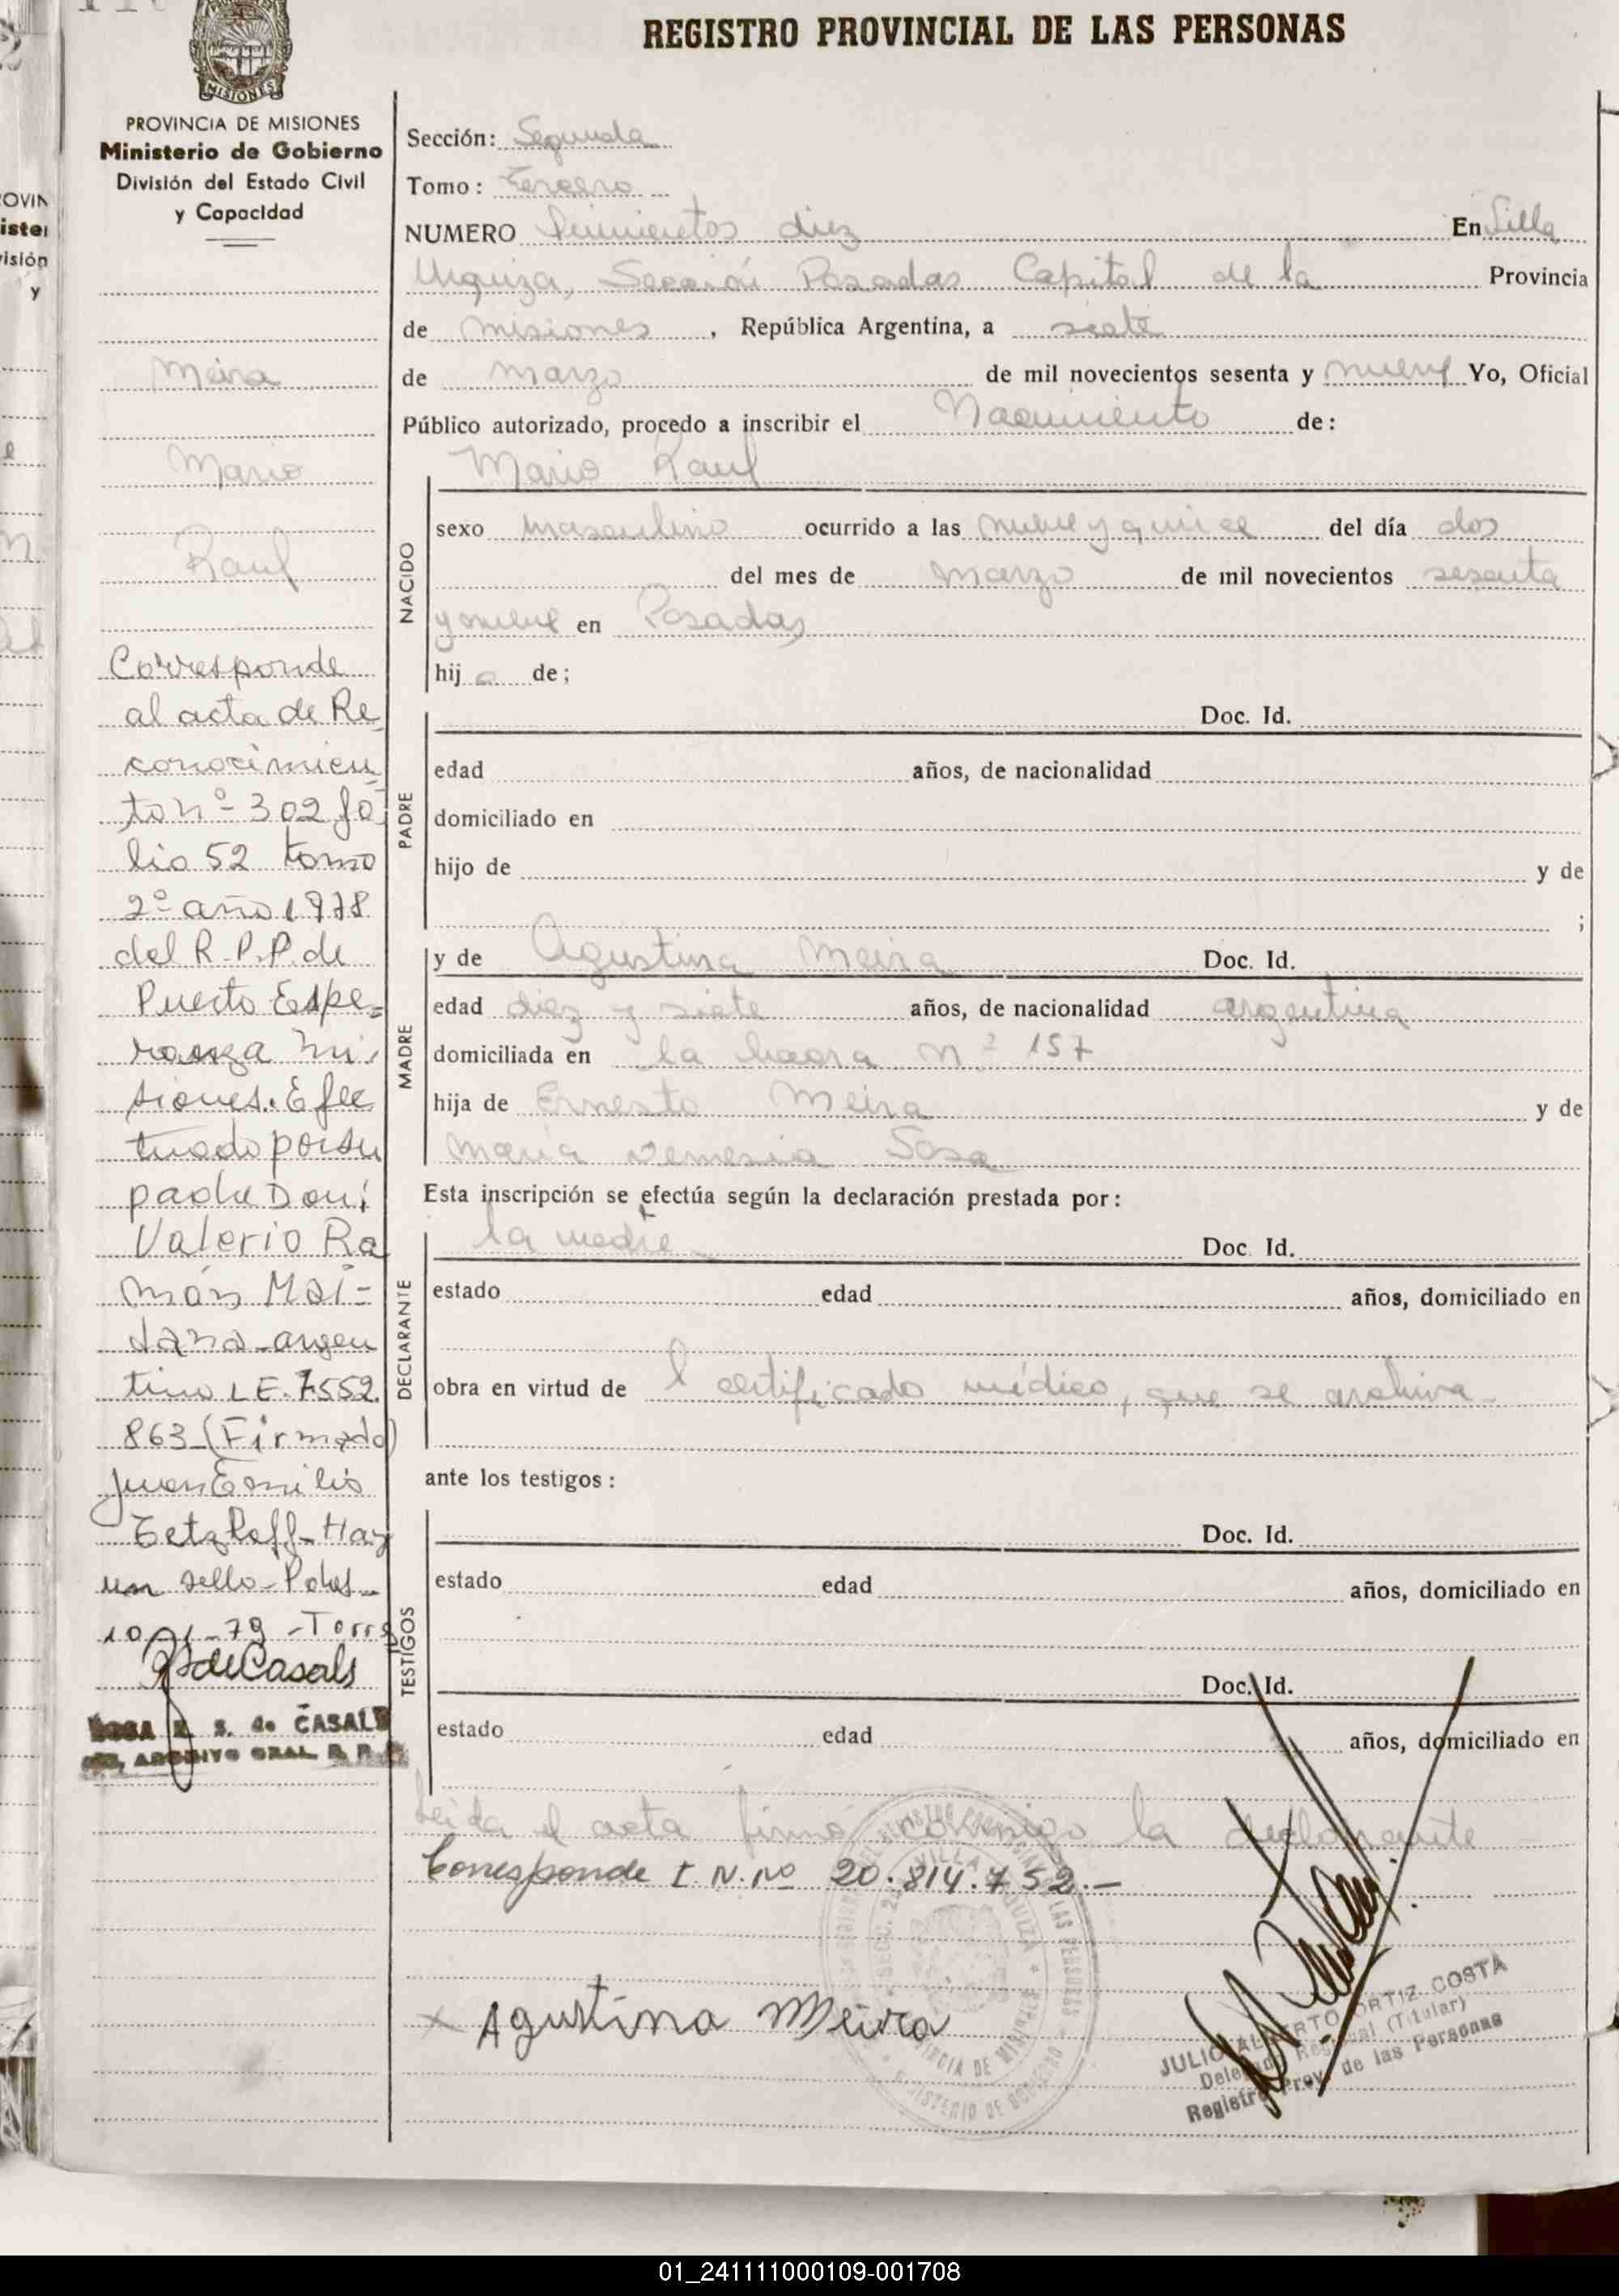 REGISTRO PROVINCIAL DE LAS PERSONAS
MISIONES
PROVINCIA DE MISIONES
Ministerio de Gobierno
División del Estado Civil
y Capacidad
Meira
Mario
Raul
Corresponde
al acta de Re
conocimien
to nº 302 fo
lio 52 tomo
2º año 1978
del R.P.P. de
Puerto Espe=
ranza Mi
siones. Efec
tuado por su
padre Don:
Valerio Ra
món Mai-
dana-argen
tino L E. 7.552.
863-(Firmado)
Juan Emilio
Hay
un sello-
10-1-79 -Torres
de Casals
ROSA E. S. de CASALS
ARCHIVO GRAL. R. P.
Sección: Segunda
Tomo: Tercero
NUMERO diez En Villa
Urquiza, Sección Posadas Capital de la Provincia
de Misiones, República Argentina, a siete
de marzo de mil novecientos sesenta y nueve Yo, Oficial
Público autorizado, procedo a inscribir el Nacimiento de:
NACIDO
Mario Raul
sexo masculino ocurrido a las nueve y quince del día dos
del mes de marzo de mil novecientos sesenta
y nueve en Posadas
hij o de;
PADRE
Doc. Id.
edad años, de nacionalidad
domiciliado en
hijo de y de
;
MADRE
y de Agustina Meira Doc. Id.
edad diez y siete años, de nacionalidad argentina
domiciliada en la chacra nº 157
hija de Ernesto Meira y de
María Nemesia Sosa
Esta inscripción se efectúa según la declaración prestada por:
DECLARANTE
la madre Doc. Id.
estado edad años, domiciliado en
obra en virtud de l certificado médico, que se archiva-
ante los testigos:
TESTIGOS
Doc. Id.
estado edad años, domiciliado en
Doc. Id.
estado edad años, domiciliado en
Leida el acta firmó conmigo la declarante
Corresponde I. N. Nº 20.814.752.-
Agustina Meira
JULIO ALBERTO ORTIZ COSTA
Delegado Regional (Titular)
Registro Prov. de las Personas
01_241111000109-001708